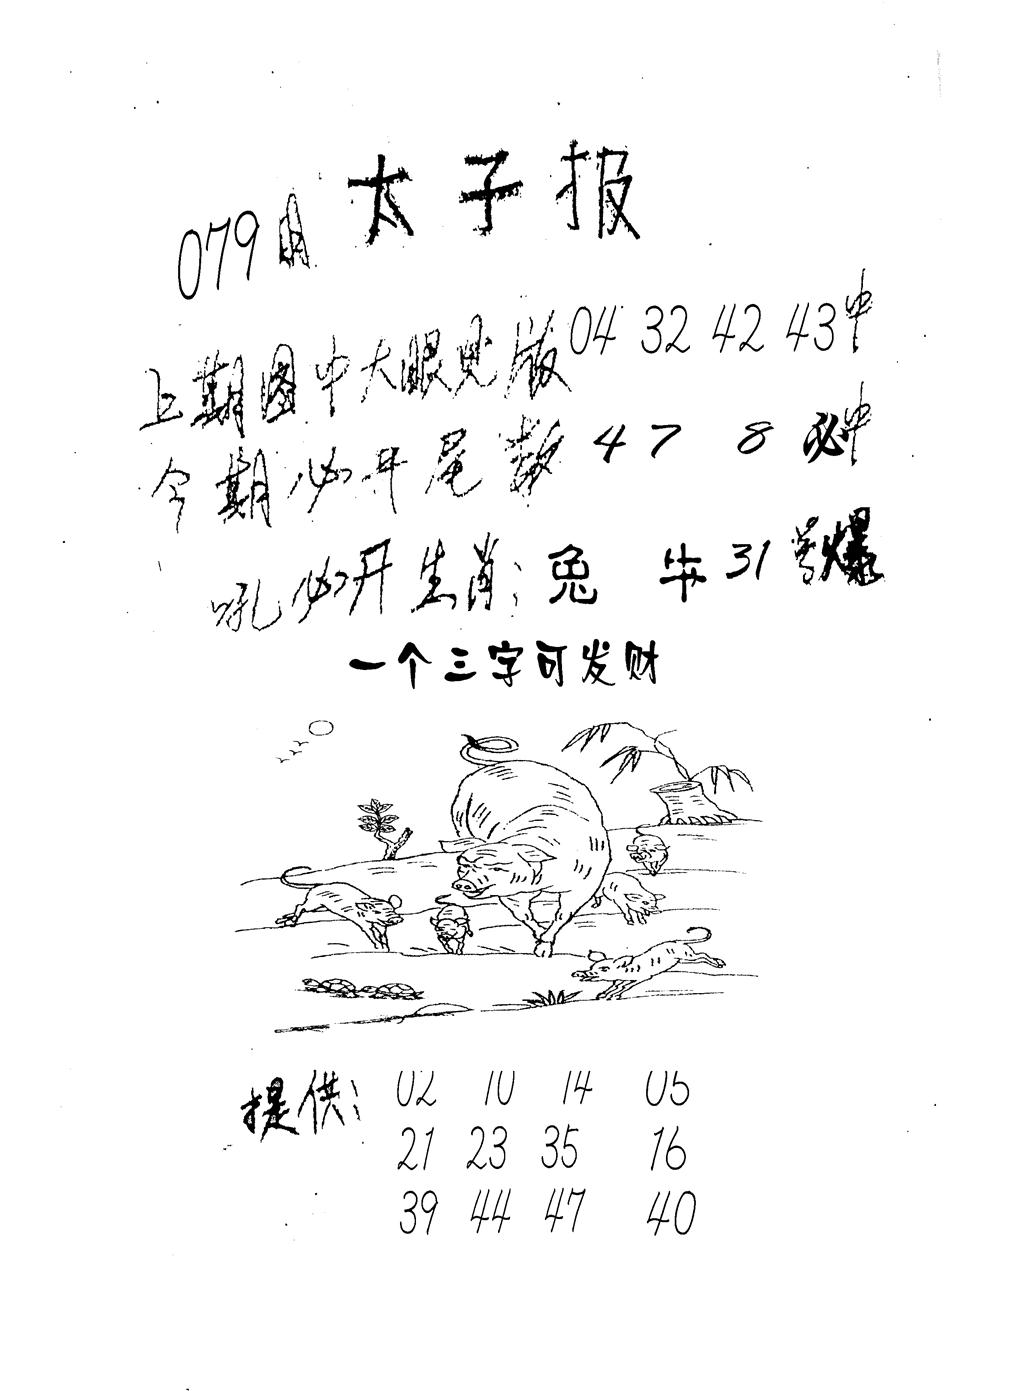 太子报
079期
上期图中大眼见版04 32 42 43中
今期必开尾数 4 7 8 必中
吼必开生肖：兔 牛 31号爆
一个三字可发财
提供： 02 10 14 05
21 23 35 16
39 44 47 40